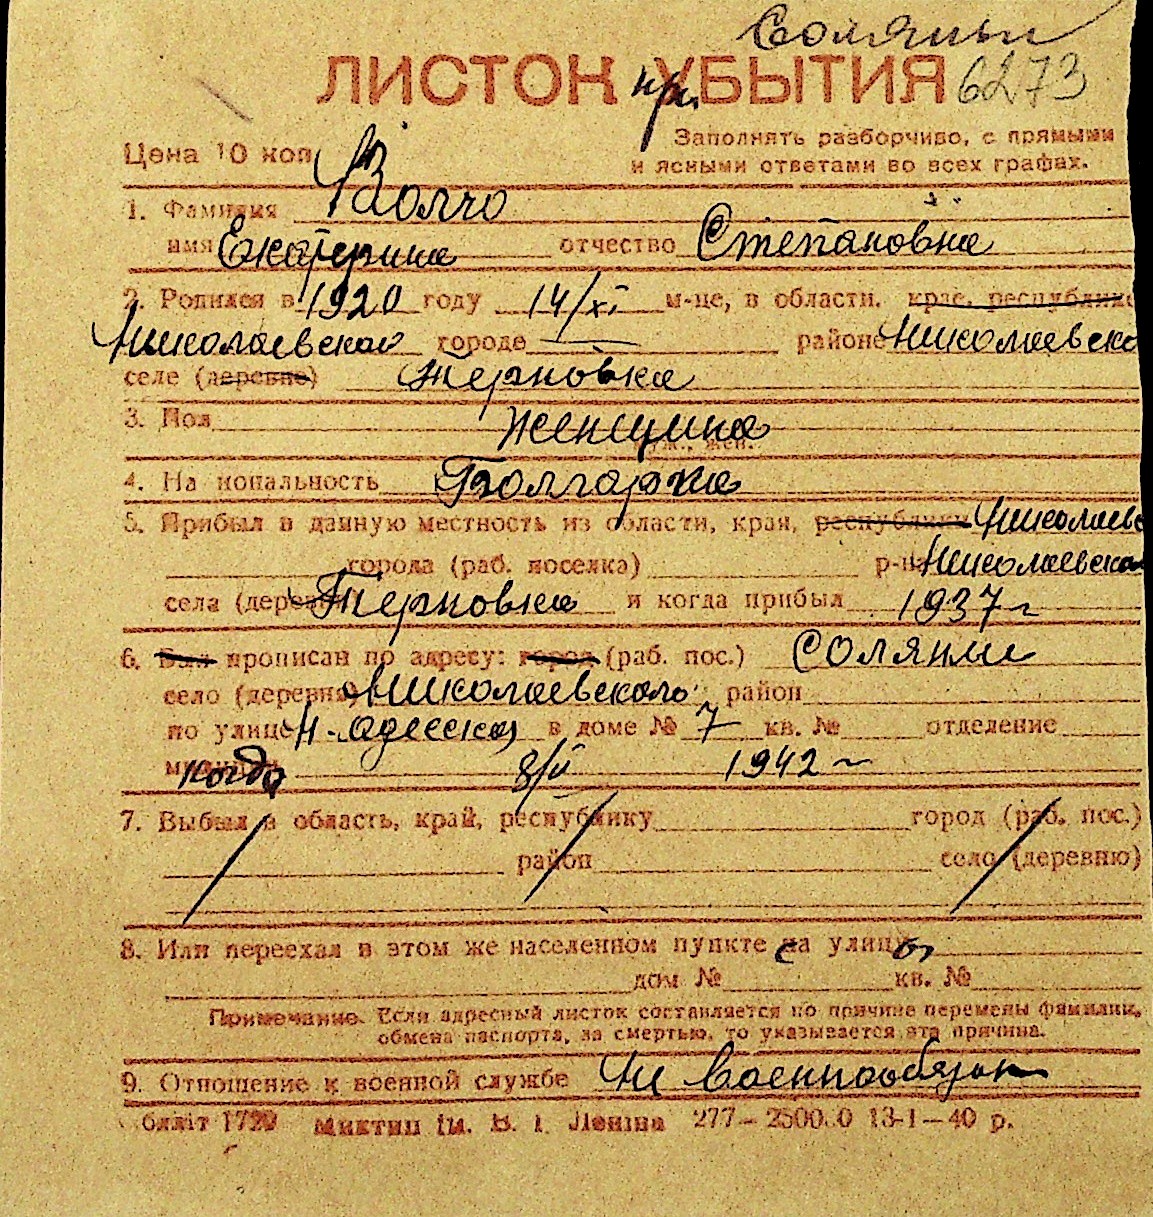 Соляны
ЛИСТОК при УБЫТИЯ 6273
Цена 10 коп. Заполнять разборчиво, с прямыми
и ясными ответами во всех графах.
1. Фамилия Волчо
имя Екатерина отчество Степановна
2. Родился в 1920 году 14/XI м-це, в области, крае, республике
Николаевской городе — районе Николаевско
селе (деревне) Терновка
3. Пол Женщина
муж., жен.
4. Национальность Болгарка
5. Прибыл в данную местность из области, края, республики Николаевс
города (раб. поселка) р-на Николаевского
села (деревни) Терновка и когда прибыл 1937 г
6. Был прописан по адресу: город (раб. пос.) Соляны
село (деревня) Николаевского район
по улице Н-Одесская в доме № 7 кв. № отделение
милиции когда 8/II 1942 г
7. Выбыл в область, край, республику город (раб. пос.)
район село (деревню)
8. Или переехал в этом же населенном пункте с на улицу
дом № кв. №
Примечание. Если адресный листок составляется по причине перемены фамилии,
обмена паспорта, за смертью, то указывается эта причина.
9. Отношение к военной службе Не военнообязан
Облліт 1799 Миктип ім. В. І. Леніна 277—25000 13-1—40 р.